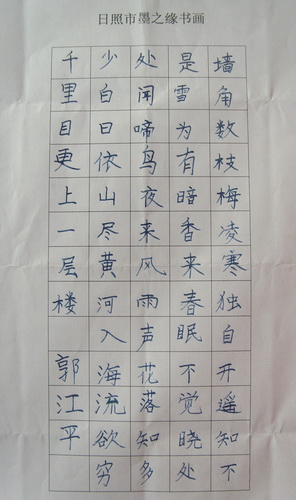 日照市墨之缘书画
墙角数枝梅凌寒独自开遥知不
是雪为有暗香来春眠不觉晓处
处闻啼鸟夜来风雨声花落知多
少白日依山尽黄河入海流欲穷
千里目更上一层楼 郭江平